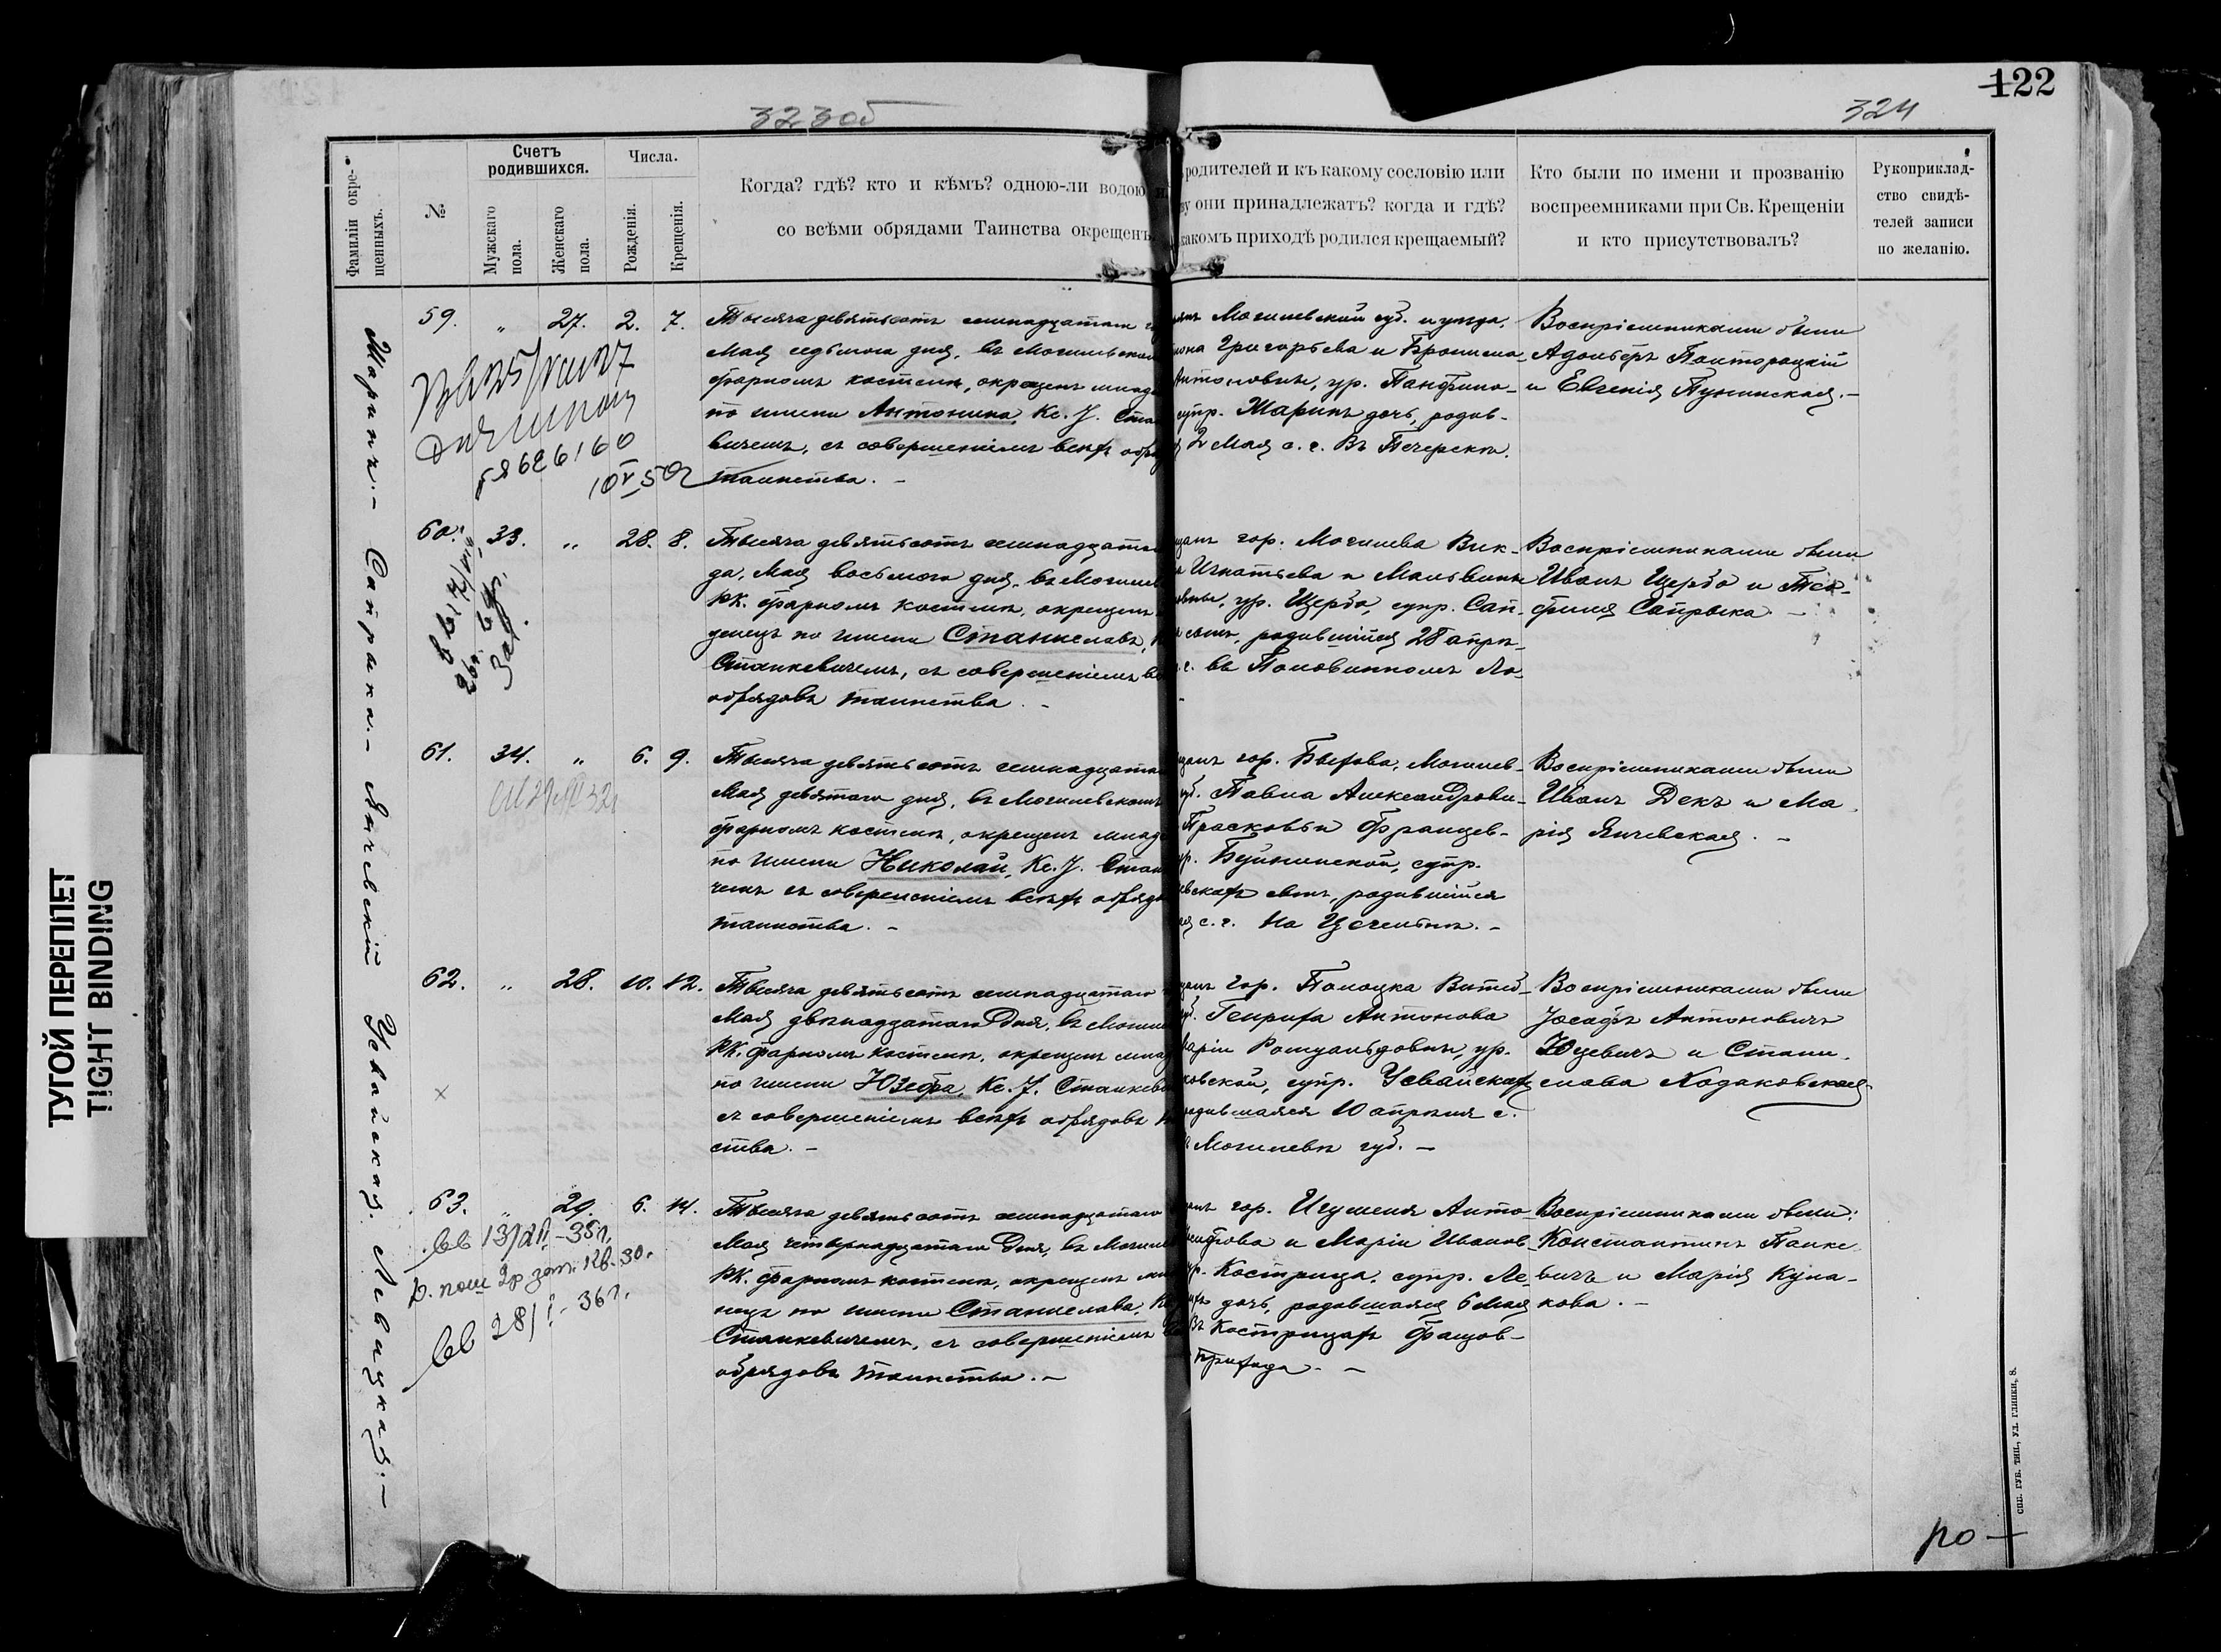 122
323об
324
ТУГОЙ ПЕРЕПЛЕТ
TIGHT BINDING
Фамиліи окре-
щенныхъ.
№
Счетъ
родившихся.
Мужскаго
пола.
Женскаго
пола.
Числа.
Рожденія.
Крещенія.
Когда? гдѣ? кто и кѣмъ? одною-ли водою и
со всѣми обрядами Таинства окрещенъ
родителей и къ какому сословію или
ву они принадлежатъ? когда и гдѣ?
какомъ приходѣ родился крещаемый?
Кто были по имени и прозванію
воспреемниками при Св. Крещеніи
и кто присутствовалъ?
Рукоприклад-
ство свидѣ-
телей записи
по желанію.
Сапрыка. – Янчевскій Усвайская. Левицкая. –
59. „ 27. 2. 7.
Тысяча девятьсотъ семнадцатаго
Мая седьмого дня, въ Могилевском
фарномъ костелѣ, окрещенъ млад
по имени Антонина, Кс. J. Стан
вичемъ, съ совершеніемъ всѣхъ обря
таинства. –
Могилевской губ. и уѣзда,
Григорьева и Бронисла-
Антоновны, ур. Панфило-
супр. Жаринъ дочь, родив-
2 Мая с. г. Въ Печерскѣ.
Воспріемниками были
Адольфъ Полторацкій
и Евгенія Пужинская. –
60. 33. „ 28. 8.
Тысяча девятьсотъ семнадцата
да, Мая восьмого дня, въ Могилев
РК. фарномъ костелѣ, окрещенъ
денецъ по имени Станиславъ,
Станкевичемъ, съ совершеніемъ вс
обрядовъ таинства. –
щанъ гор. Могилева Вик-
Игнатьева и Мальвины
овны, ур. Щербо, супр. Сап-
сынъ, родившійся 28 апрѣ-
г. въ Половинномъ Ло-
–
Воспріемниками были
Иванъ Щербо и Тео-
филія Сапрыка –
61. 34. „ 6. 9.
Тысяча девятьсотъ семнадцата
Мая девятаго дня, въ Могилевскомъ
фарномъ костелѣ, окрещенъ млад
по имени Николай, Кс. J. Стан
чемъ съ совершеніемъ всѣхъ обрядо
таинства. –
щанъ гор. Быхова, Могилев-
уб. Павла Александрови-
Прасковьи Францев-
ур. Буйницкой, супр.
евскихъ сынъ, родившійся
ая с. г. На
Воспріемниками были
Иванъ Декъ и Ма-
рія Янчевская. –
62. „ 28. 10. 12.
Тысяча девятьсотъ семнадцатаго
Мая двѣнадцатаго дня, въ Могил
РК. фарномъ костелѣ, окрещенъ млад
по имени Юзефа, Кс. J. Станкеви
съ совершеніемъ всѣхъ обрядовъ т
ства. –
щанъ гор. Полоцка Витеб-
уб. Генриха Антонова
Маріи Ромуальдовны, ур.
ковской, супр. Усвайскихъ
родившаяся 10 апрѣля с.
Могилевѣ губ. –
Воспріемниками были
Іосафъ Антоновичъ
Юцевичъ и Стани-
слава Ходаковская.
63. „ 29. 6. 14.
Тысяча девятьсотъ семнадцатаго
Мая четырнадцатаго дня, въ Могилев
РК. фарномъ костелѣ, окрещенъ мла
нецъ по имени Станислава, Кс
Станкевичемъ, съ совершеніемъ вс
обрядовъ таинства. –
щанъ гор. Игуменя Анто-
и Маріи Иванов-
ур. Кострица, супр. Ле-
дочь, родившаяся 6 Мая
Въ Кострицахъ Фащов-
прихода. –
Воспріемниками были:
Константинъ Панке-
вичъ и Марія Кула-
кова. –
СПБ. ГУБ. ТИП., УЛ. ГЛИНКИ, 8.